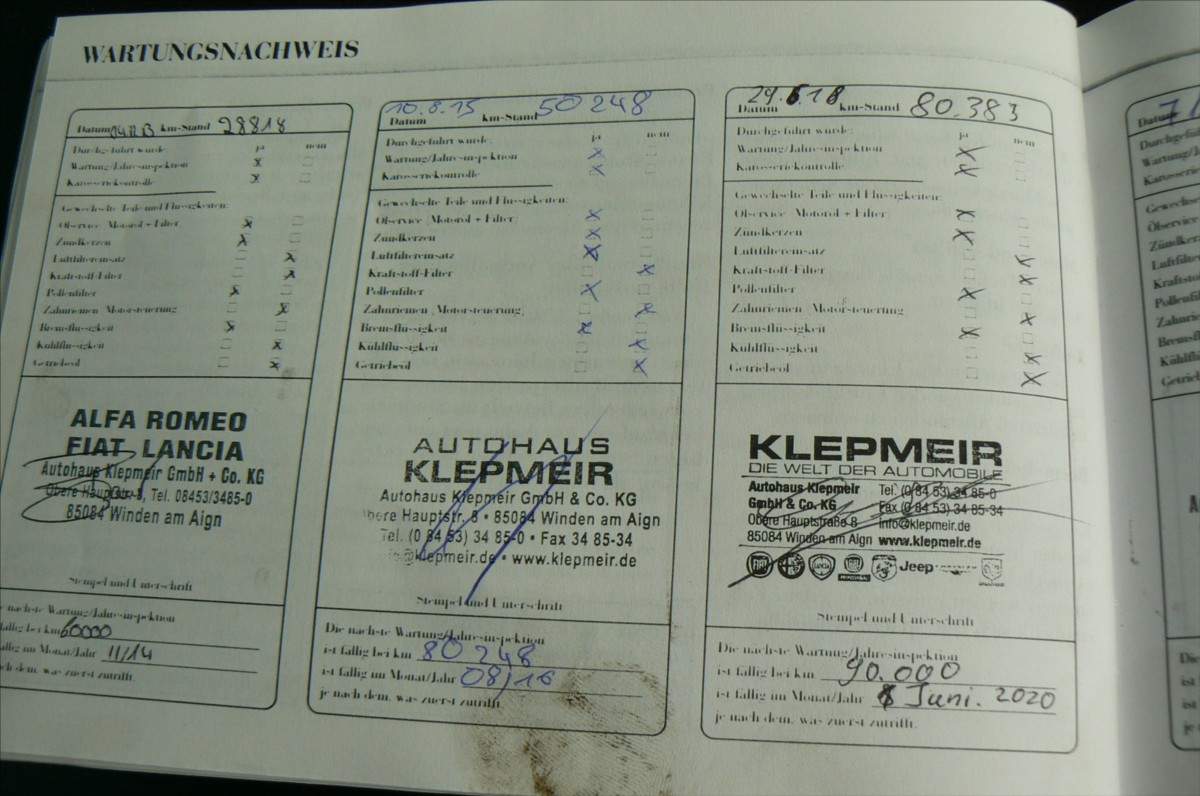 WARTUNGSNACHWEIS
Datum 04.11.13 km-Stand 28818
Durchgeführt wurde: ja nein
Wartung/Jahresinspektion
Karosseriekontrolle
Gewechselte Teile und Flüssigkeiten:
Ölservice (Motoröl + Filter)
Zündkerzen
Luftfiltereinsatz
Kraftstoff-Filter
Pollenfilter
Zahnriemen (Motorsteuerung)
Bremsflüssigkeit
Kühlflüssigkeit
Getriebeöl
ALFA ROMEO
FIAT LANCIA
Autohaus Klepmeir GmbH + Co. KG
Obere Hauptstr. 8, Tel. 08453/3485-0
85084 Winden am Aign
Stempel und Unterschrift
nächste Wartung/Jahresinspektion
fällig bei km 60000
fällig im Monat/Jahr 11/14
nach dem, was zuerst zutrifft.
10.8.15 50 248
Datum km-Stand
Durchgeführt wurde: ja nein
Wartung/Jahresinspektion
Karosseriekontrolle
Gewechselte Teile und Flüssigkeiten:
Ölservice (Motoröl + Filter)
Zündkerzen
Luftfiltereinsatz
Kraftstoff-Filter
Pollenfilter
Zahnriemen (Motorsteuerung)
Bremsflüssigkeit
Kühlflüssigkeit
Getriebeöl
AUTOHAUS
KLEPMEIR
Autohaus Klepmeir GmbH & Co. KG
Obere Hauptstr. 8 • 85084 Winden am Aign
Tel. (0 84 53) 34 85-0 • Fax 34 85-34
info@klepmeir.de • www.klepmeir.de
Stempel und Unterschrift
Die nächste Wartung/Jahresinspektion
ist fällig bei km 80 248
ist fällig im Monat/Jahr 08/16
je nach dem, was zuerst zutrifft.
29.6.18 80.383
Datum km-Stand
Durchgeführt wurde: ja nein
Wartung/Jahresinspektion
Karosseriekontrolle
Gewechselte Teile und Flüssigkeiten:
Ölservice (Motoröl + Filter)
Zündkerzen
Luftfiltereinsatz
Kraftstoff-Filter
Pollenfilter
Zahnriemen (Motorsteuerung)
Bremsflüssigkeit
Kühlflüssigkeit
Getriebeöl
KLEPMEIR
DIE WELT DER AUTOMOBILE
Autohaus Klepmeir Tel. (0 84 53) 34 85-0
GmbH & Co. KG Fax (0 84 53) 34 85-34
Obere Hauptstraße 8 info@klepmeir.de
85084 Winden am Aign www.klepmeir.de
FIAT Jeep
Stempel und Unterschrift
Die nächste Wartung/Jahresinspektion
ist fällig bei km 90.000
ist fällig im Monat/Jahr Juni. 2020
je nach dem, was zuerst zutrifft.